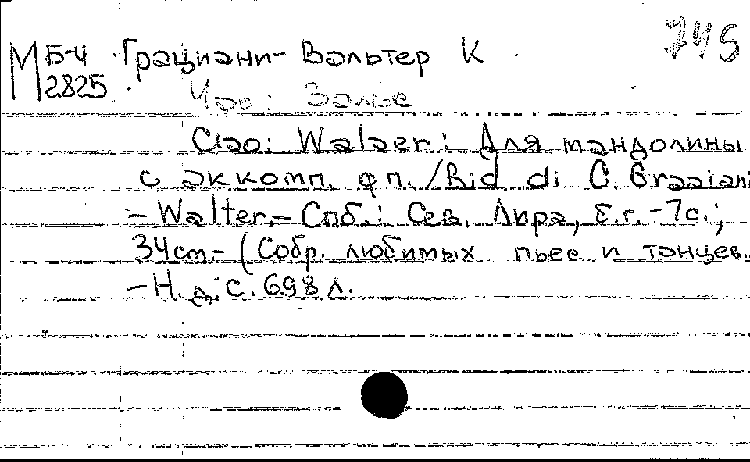 745
М Б-4 Грациани-Вальтер К
2825 Чао: Вальс
Ciao: Walzer: Для мандолины
с аккомп. фп. /Rid di C. Graziani
- Walter.- Спб.: Сев. Лира, Б.г.-7с.;
34cm- (Собр. любимых пьес и танцев.
-Н.д.: С. 698 Л.